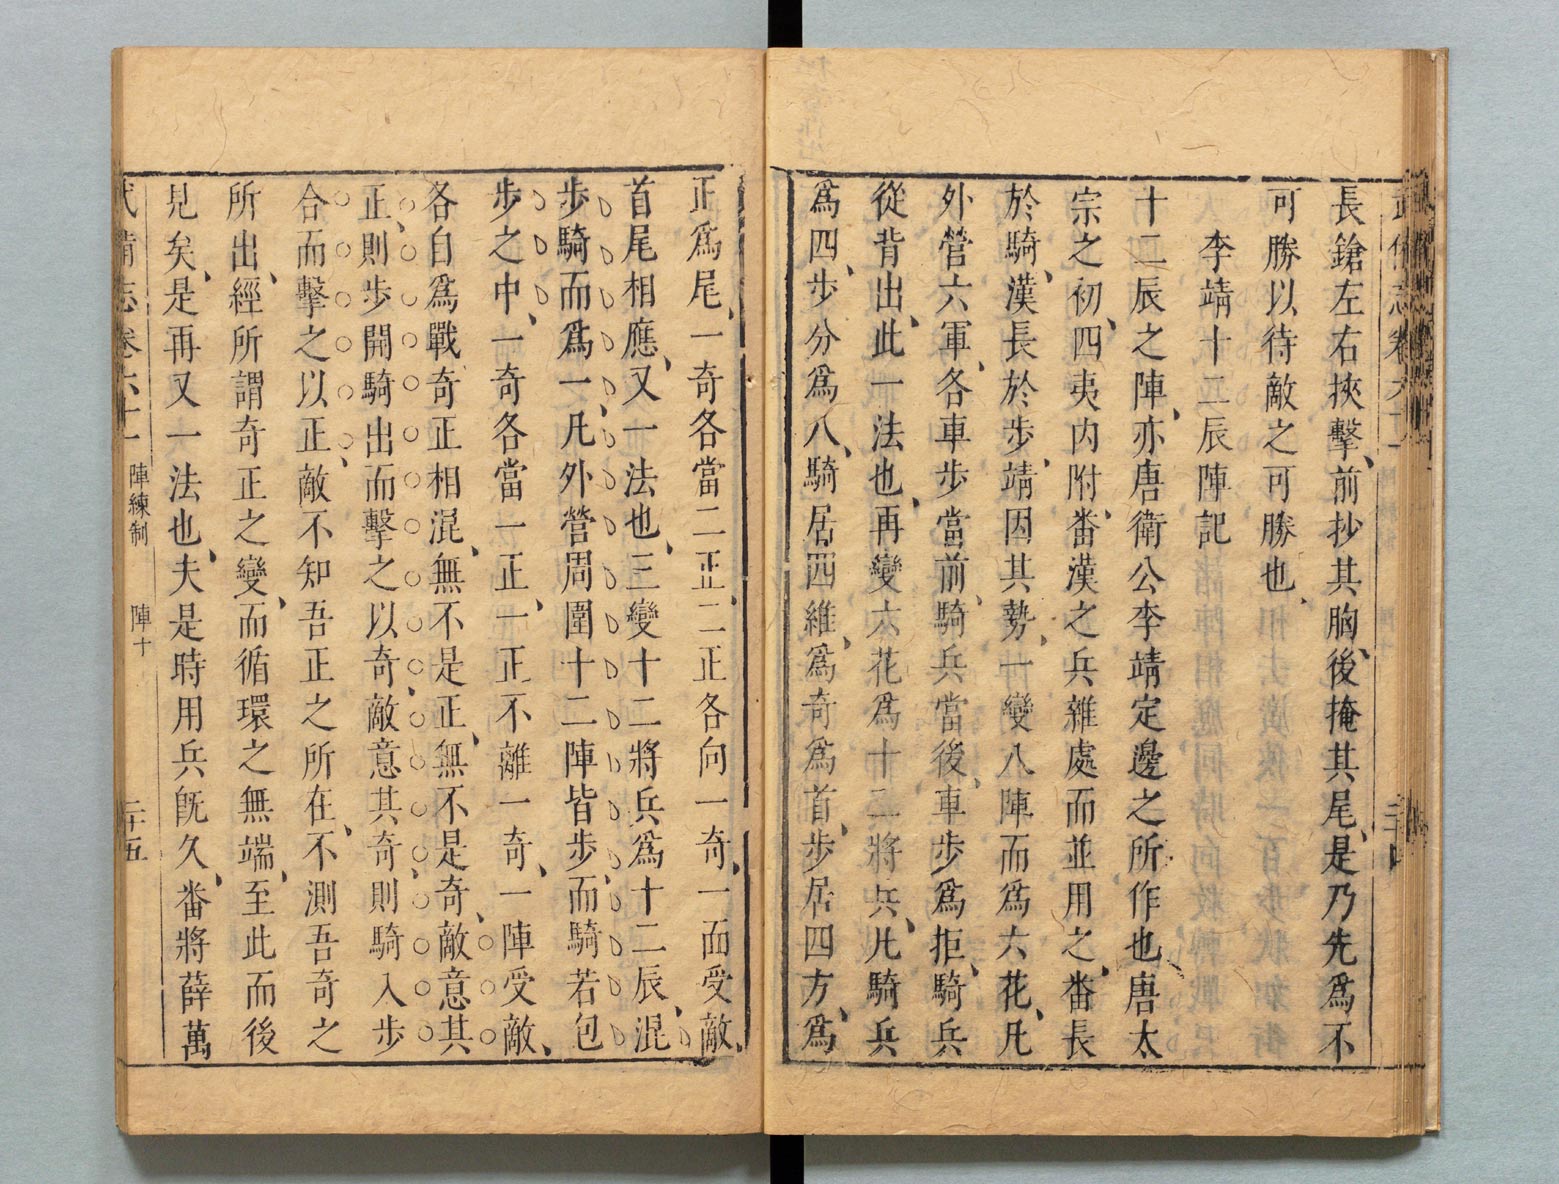 長鎗左右挾擊前抄其胸後掩其尾是乃先爲不
可勝以待敵之可勝也
李靖十二辰陣記
十二辰之陣亦唐衛公李靖定邊之所作也唐太
宗之初四夷內附畨漢之兵雜處而並用之畨長
於騎漢長於步靖因其勢一變八陣而爲六花凡
外營六軍各車步當前騎兵當後車步爲拒騎兵
從背出此一法也再變六花爲十二將兵凡騎兵
爲四步分爲八騎居四維爲奇爲首步居四方爲
正爲尾一奇各當二正二正各向一奇一面受敵
首尾相應又一法也三變十二將兵爲十二辰混
步騎而爲一凡外營周圍十二陣皆步而騎若包
步之中一奇各當一正一正不離一奇一陣受敵
各自爲戰奇正相混無不是正無不是奇敵意其
正則步開騎出而擊之以奇敵意其奇則騎入步
合而擊之以正敵不知吾正之所在不測吾奇之
所出經所謂奇正之變而循環之無端至此而後
見矣是再又一法也夫是時用兵旣久畨將薛萬
武備志卷六十一 陣練制 陣十 二十五